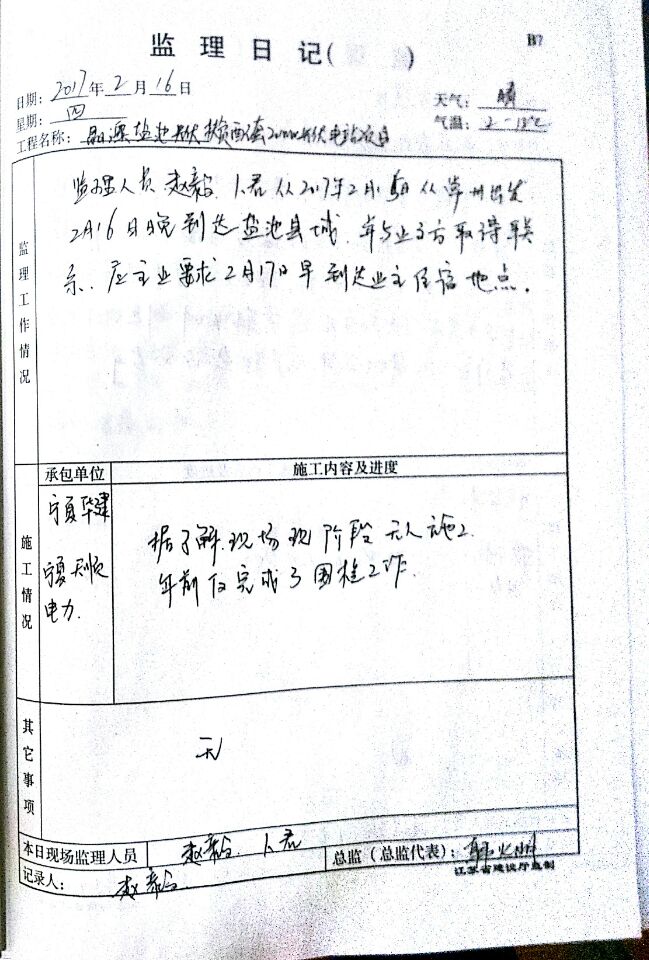 监理日记( )
B7
日期：2017年2月16日
天气：晴
星期：四
气温：2-13℃
工程名称：盐池光伏 光伏电站项目
监理工作情况
监理人员赵毅、卜君从2017年2月 从常州出发
2月16日晚到达盐池县城，并与业主方取得联
系，应主业要求2月17日早到达业主住宿地点。
施工情况
承包单位
施工内容及进度
宁夏华建
宁夏天顺
电力.
据了解，现场现阶段无人施工
年前仅完成了围栏工作.
其它事项
无
本日现场监理人员
赵毅、卜君
总监（总监代表）：
记录人：
赵毅
江苏省建设厅监制